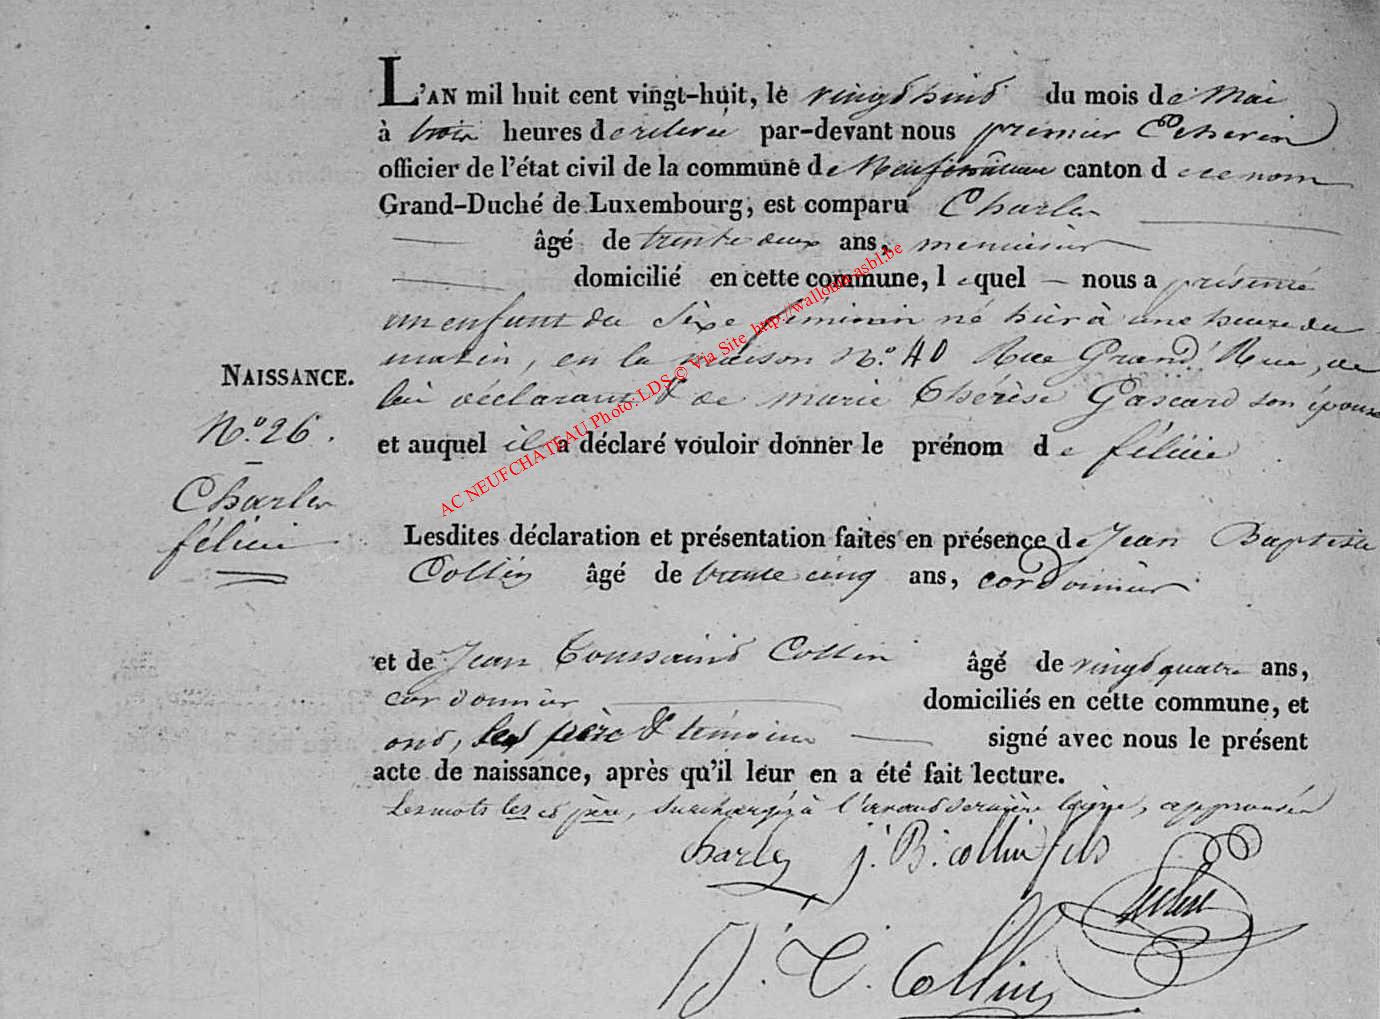 L'AN mil huit cent vingt-huit, le vingt huit du mois de Mai
à trois heures de relevée par-devant nous premier Echevin
officier de l'état civil de la commune de Neufchâteau canton de ce nom
Grand-Duché de Luxembourg, est comparu Charles
âgé de trente deux ans, menuisier
domicilié en cette commune, lequel nous a présenté
un enfant du sexe féminin né hier à une heure du
matin, en la maison N.º 40 Rue Grand' Rue, de
lui déclarant & de marie Thérèse Gascard son épouse
et auquel il a déclaré vouloir donner le prénom de félicie
NAISSANCE.
N.º 26.
Charles
félicie
Lesdites déclaration et présentation faites en présence de Jean Baptiste
Collin âgé de trente cinq ans, cordonnier
et de Jean Toussaint Collin âgé de vingt quatre ans,
cordonnier domiciliés en cette commune, et
ont, les père & témoins signé avec nous le présent
acte de naissance, après qu'il leur en a été fait lecture.
Les mots les et père, surchargés à l'avant dernière ligne, approuvés
Charles J. B. Collin fils
J. T. Collin
AC NEUFCHATEAU Photo: LDS © Via Site http://wallonia-asbl.be